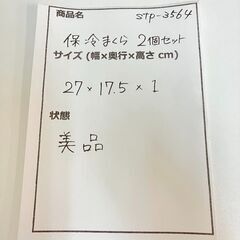 商品名 STP-3564
保冷まくら 2個セット
サイズ (幅×奥行×高さ cm)
27×17.5×1
状態
美品